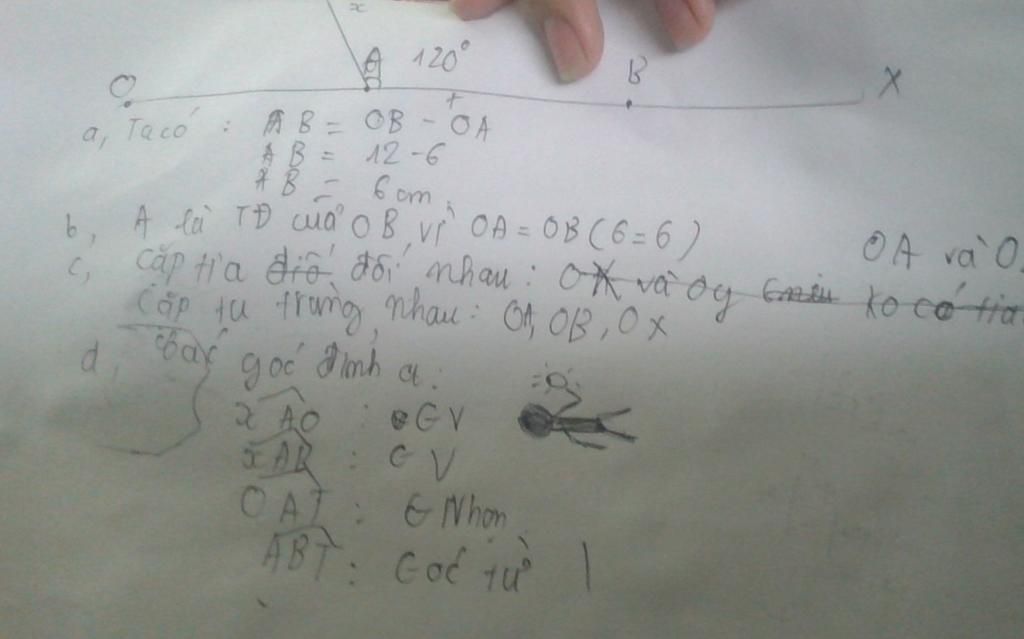 x
O A 120° B X
a, Ta có : AB = OB - OA
AB = 12 - 6
AB = 6 cm.
b, A là TĐ của OB, vì OA = OB (6=6)
OA và O
c, cặp tia đối nhau : OX và Oy ko có tia
cặp tia trùng nhau : OA, OB, Ox
d, Các góc đỉnh a:
xAO : GV
xAB : GV
OAT : G Nhọn
ABT : Góc tù